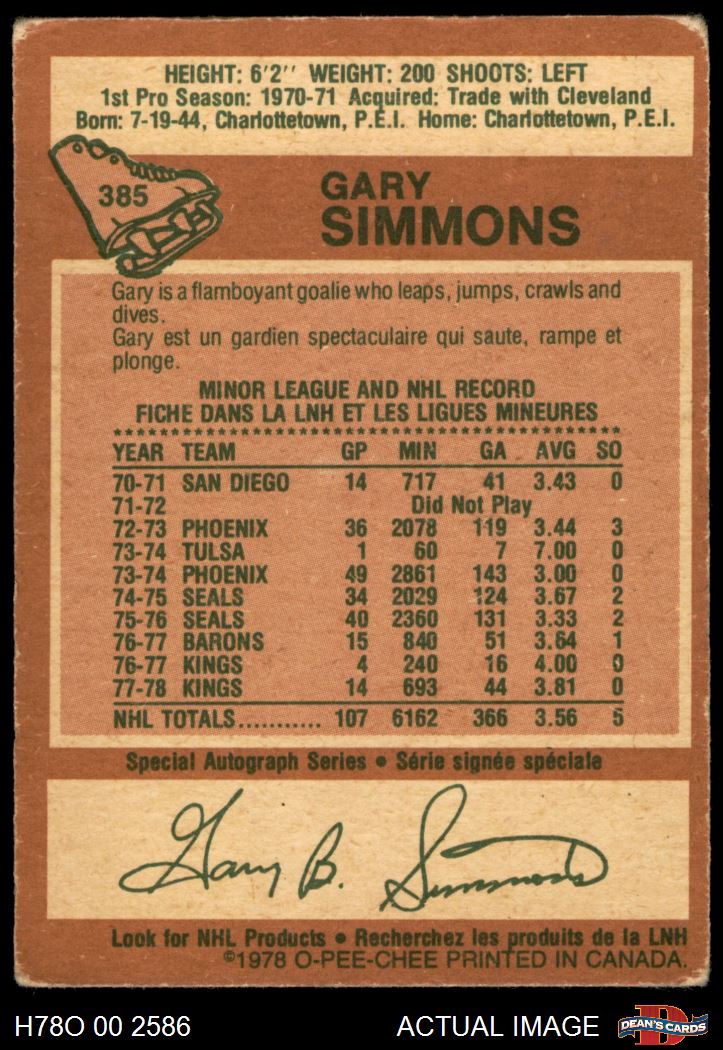 HEIGHT: 6'2'' WEIGHT: 200 SHOOTS: LEFT
1st Pro Season: 1970-71 Acquired: Trade with Cleveland
Born: 7-19-44, Charlottetown, P.E.I. Home: Charlottetown, P.E.I.
385
GARY
SIMMONS
Gary is a flamboyant goalie who leaps, jumps, crawls and
dives.
Gary est un gardien spectaculaire qui saute, rampe et
plonge.
MINOR LEAGUE AND NHL RECORD
FICHE DANS LA LNH ET LES LIGUES MINEURES
YEAR TEAM GP MIN GA AVG SO
70-71 SAN DIEGO 14 717 41 3.43 0
71-72 Did Not Play
72-73 PHOENIX 36 2078 119 3.44 3
73-74 TULSA 1 60 7 7.00 0
73-74 PHOENIX 49 2861 143 3.00 0
74-75 SEALS 34 2029 124 3.67 2
75-76 SEALS 40 2360 131 3.33 2
76-77 BARONS 15 840 51 3.64 1
76-77 KINGS 4 240 16 4.00 0
77-78 KINGS 14 693 44 3.81 0
NHL TOTALS........... 107 6162 366 3.56 5
Special Autograph Series • Série signée spéciale
Gary B. Simmons
Look for NHL Products • Recherchez les produits de la LNH
©1978 O-PEE-CHEE PRINTED IN CANADA.
H78O 00 2586 ACTUAL IMAGE
D
DEAN'S CARDS